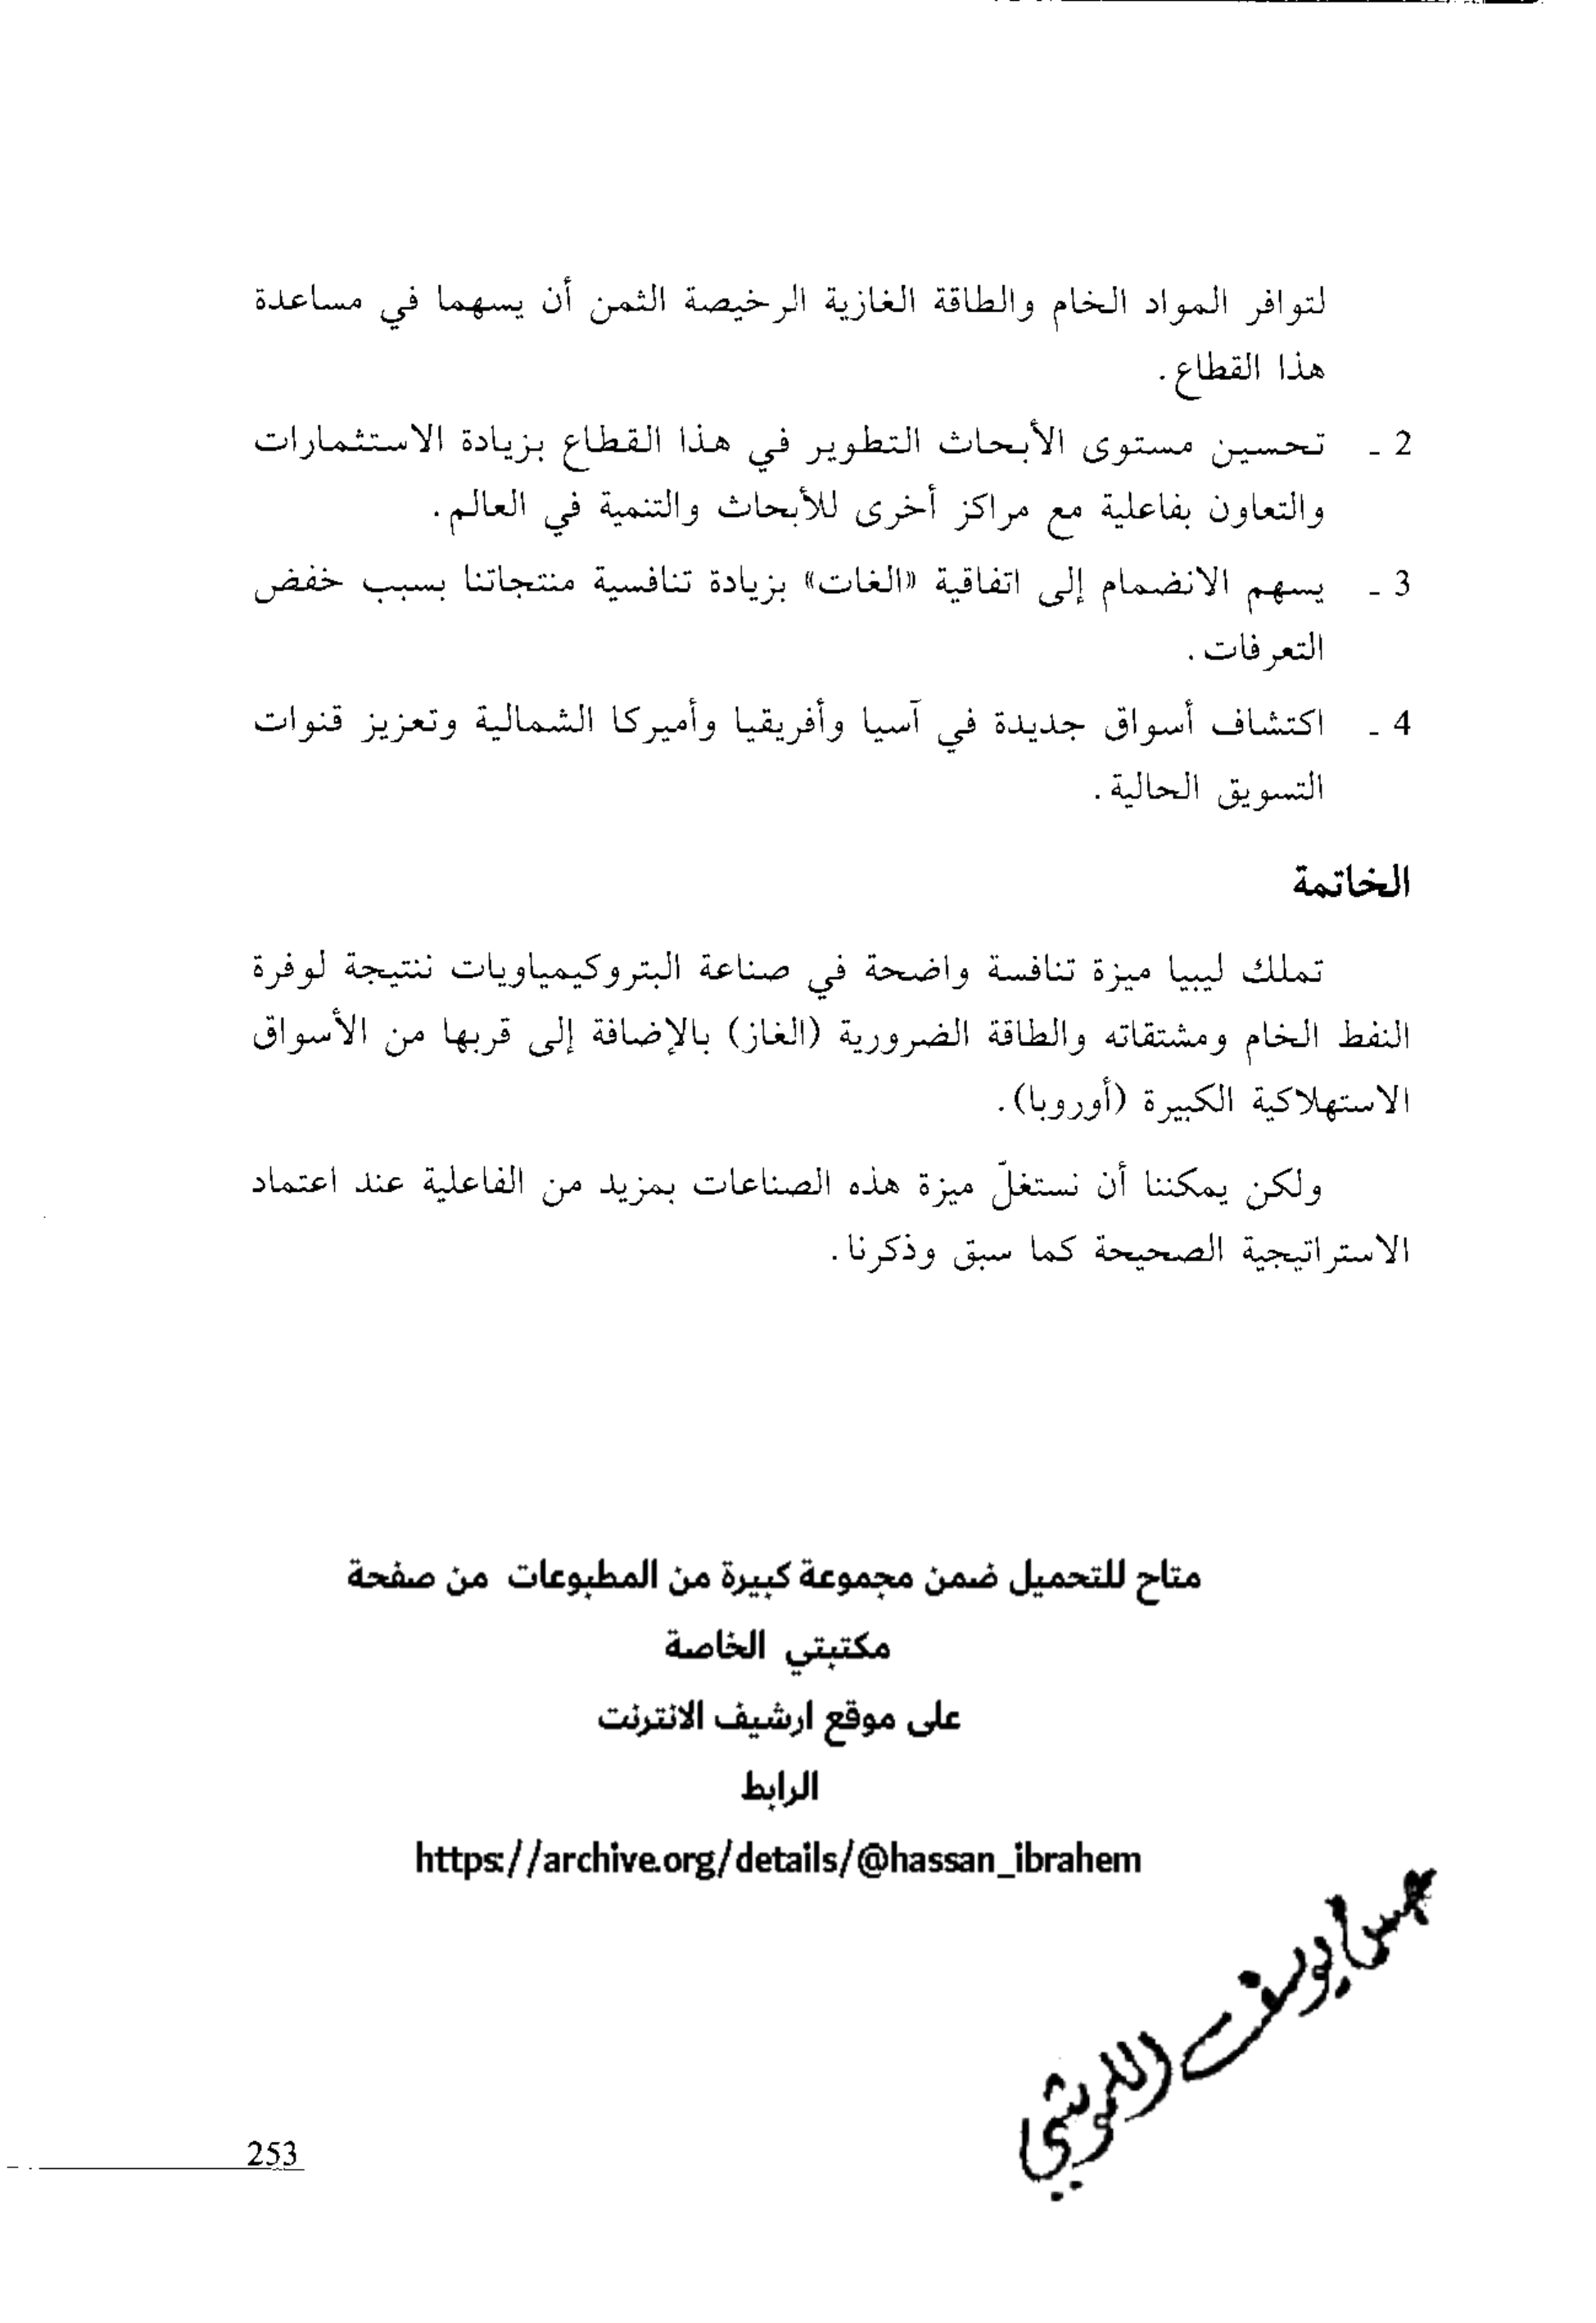 لتوافر المواد الخام والطاقة الغازية الرخيصة الثمن أن يسهما في مساعدة
هذا القطاع.
2 ـ تحسين مستوى الأبحاث التطوير في هذا القطاع بزيادة الاستثمارات
والتعاون بفاعلية مع مراكز أخرى للأبحاث والتنمية في العالم.
3 ـ يسهم الانضمام إلى اتفاقية «الغات» بزيادة تنافسية منتجاتنا بسبب خفض
التعرفات.
4 ـ اكتشاف أسواق جديدة في آسيا وأفريقيا وأميركا الشمالية وتعزيز قنوات
التسويق الحالية.
الخاتمة
تملك ليبيا ميزة تنافسة واضحة في صناعة البتروكيمياويات ننتيجة لوفرة
النفط الخام ومشتقاته والطاقة الضرورية (الغاز) بالإضافة إلى قربها من الأسواق
الاستهلاكية الكبيرة (أوروبا).
ولكن يمكننا أن نستغلّ ميزة هذه الصناعات بمزيد من الفاعلية عند اعتماد
الاستراتيجية الصحيحة كما سبق وذكرنا.
متاح للتحميل ضمن مجموعة كبيرة من المطبوعات من صفحة
مكتبتي الخاصة
على موقع ارشيف الانترنت
الرابط
https://archive.org/details/@hassan_ibrahem
253